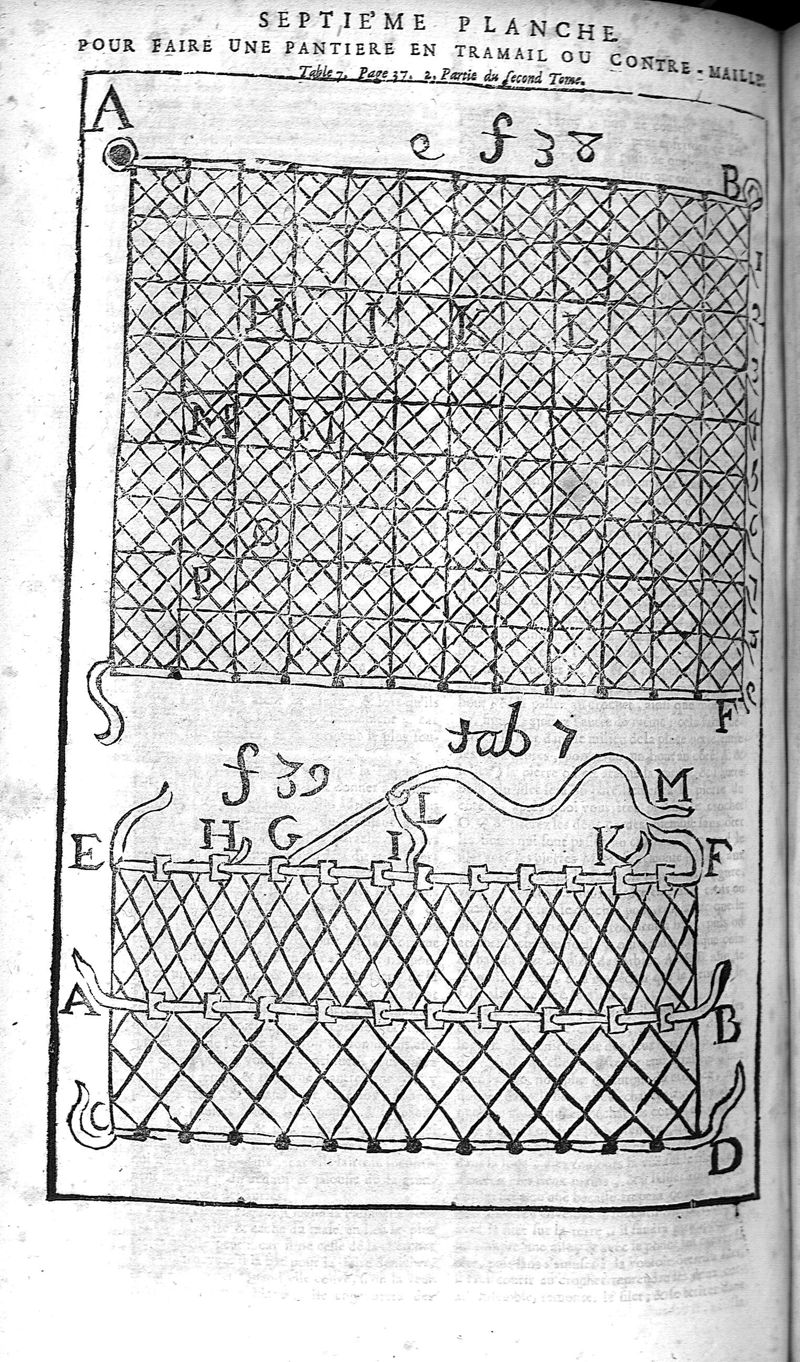 SEPTIE'ME PLANCHE
POUR FAIRE UNE PANTIERE EN TRAMAIL OU CONTRE-MAILLE
Table 7, Page 37. 2, Partie du ſecond Tome.
A
e f 38
B
1
2
H I K L
3
M N
4
5
O
6
P
7
F
tab 7
f 39
M
L
H G I K
E F
A B
C D